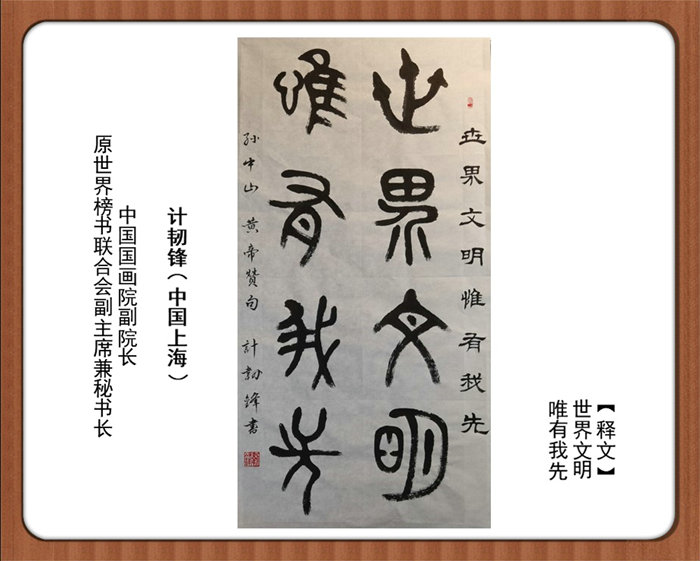 【释文】
世界文明
唯有我先
世界文明惟有我先
世界文明
唯有我先
孙中山 黄帝赞句 计韧锋書
计韧锋（中国上海）
中国国画院副院长
原世界榜书联合会副主席兼秘书长